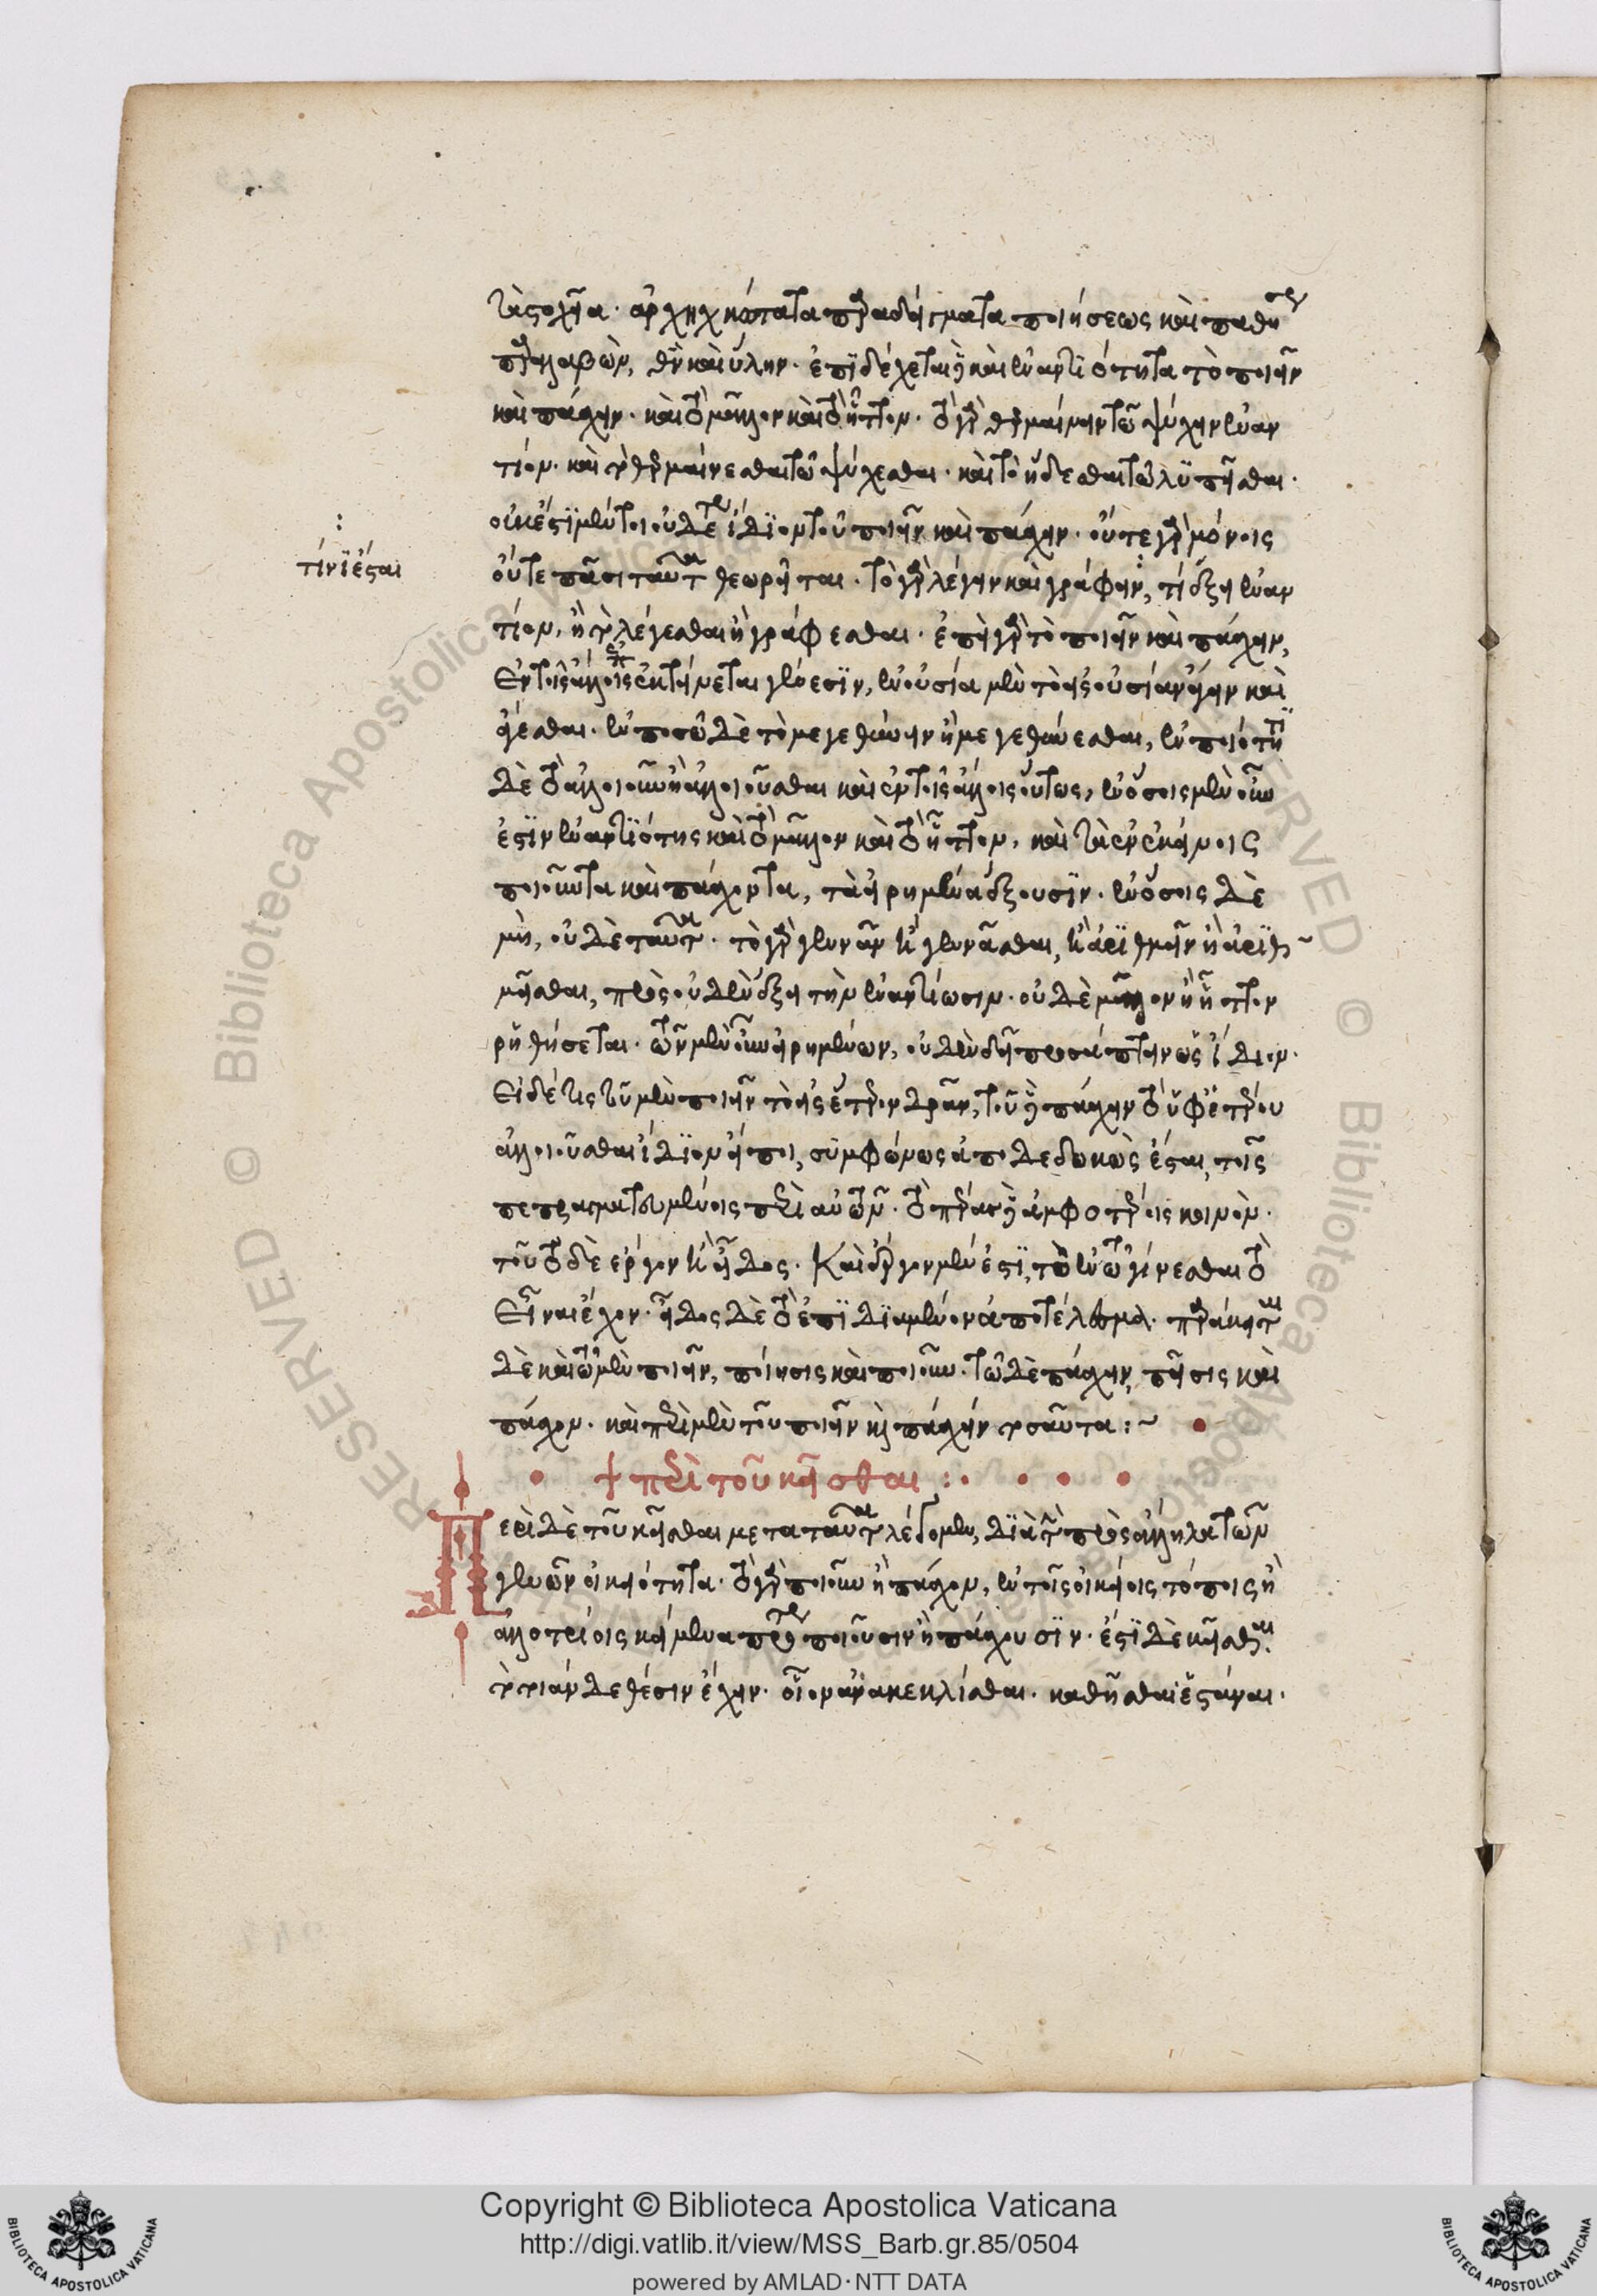 τὰ στοιχεῖα. ἀρχηγικώτατα παραδείγματα ποιήσεως καὶ παθῶν
παραλαβὼν, θεὸν καὶ ὕλην. ἐπιδέχεται δὲ καὶ ἐναντιότητα τὸ ποιεῖν
καὶ πάσχειν. καὶ τὸ μᾶλλον καὶ τὸ ἧττον. τὸ γὰρ θερμαίνειν τῶ ψύχειν ἐναν
τίον. καὶ τὸ θερμαίνεσθαι τῶ ψύχεσθαι. καὶ τὸ ἥδεσθαι τῶ λυπεῖσθαι.
οὐκ ἔστι μέντοι οὐδέτερον ἴδιον τοῦ ποιεῖν καὶ πάσχειν. οὔτε γὰρ μόνοις
τίνι ἔσται
οὔτε πᾶσι ταῦτα θεωρεῖται. τὸ γὰρ λέγειν καὶ γράφειν, τί δόξει ἐναν
τίον, ἢ τὸ λέγεσθαι ἢ γράφεσθαι. ἐπεὶ γὰρ τὸ ποιεῖν καὶ πάσχειν,
ἐν τοῖς ἄλλοις ἐκτείνεται γένεσιν, ἐν οὐσία μὲν τὸ εἰς οὐσίαν ἄγειν καὶ
ἄγεσθαι. ἐν ποσῶ δὲ τὸ μεγεθύνειν ἢ μεγεθύνεσθαι, ἐν ποιότητι
δὲ τὸ ἀλλοιοῦν ἢ ἀλλοιοῦσθαι καὶ ἐν τοῖς ἄλλοις οὕτως, ἐν ὅσοις μὲν οὖν
ἐστὶν ἐναντιότης καὶ τὸ μᾶλλον καὶ τὸ ἧττον, καὶ τὰ ἐν ἐκείνοις
ποιοῦντα καὶ πάσχοντα, τὰ εἰρημένα δόξουσιν. ἐν ὅσοις δὲ
μὴ, οὐδὲ ταῦτα. τὸ γὰρ γεννᾶν ἢ γεννᾶσθαι, ἢ ἀριθμεῖν ἢ ἀριθ
μεῖσθαι, πρὸς οὐδὲν δόξει τὴν ἐναντίωσιν. οὐδὲ μᾶλλον ἢ ἧττον
ῥηθήσεται. τῶν μὲν οὖν εἰρημένων, οὐδὲν δεῖ προσάπτειν ὡς ἴδιον.
Εἰ δέ τις τοῦ μὲν ποιεῖν τὸ εἰς ἕτερον δρᾶν, τοῦ δὲ πάσχειν τὸ ὑφ' ἑτέρου
ἀλλοιοῦσθαι ἴδιον εἴποι, συμφώνως ἀποδεδωκὼς ἔσται, τοῖς
πεπραγματευμένοις περὶ αὐτῶν. τὸ πέρας δὲ ἀμφοτέροις κοινὸν.
τοῦτο δὲ ἔργον ἢ εἶδος. Καὶ ἔργον μέν ἐστι, τὸ ἐν τῶ γίνεσθαι τὸ
εἶναι ἔχον. εἶδος δὲ τὸ ἐπὶ διαμένον ἀποτέλεσμα. παράκειται
δὲ καὶ τῶ μὲν ποιεῖν, ποίησις καὶ ποιοῦν. τῶ δὲ πάσχειν, πεῖσις καὶ
πάσχον. καὶ περὶ μὲν τοῦ ποιεῖν καὶ πάσχειν τοσαῦτα :~
+ περὶ τοῦ κεῖσθαι :.
Περὶ δὲ τοῦ κεῖσθαι μετὰ ταῦτα λέγομεν, διὰ τὴν πρὸς ἄλληλα τῶν
γενῶν οἰκειότητα. τὸ γὰρ ποιοῦν ἢ πάσχον, ἐν τοῖς οἰκείοις τόποις ἢ
ἀλλοτρίοις κείμενα πρότερον ποιοῦσιν ἢ πάσχουσιν. ἔστι δὲ κεῖσθαι
τὸ τοιάνδε θέσιν ἔχειν. οἷον ἀνακεκλίσθαι. καθῆσθαι ἑστάναι.
Copyright © Biblioteca Apostolica Vaticana
http://digi.vatlib.it/view/MSS_Barb.gr.85/0504
powered by AMLAD·NTT DATA